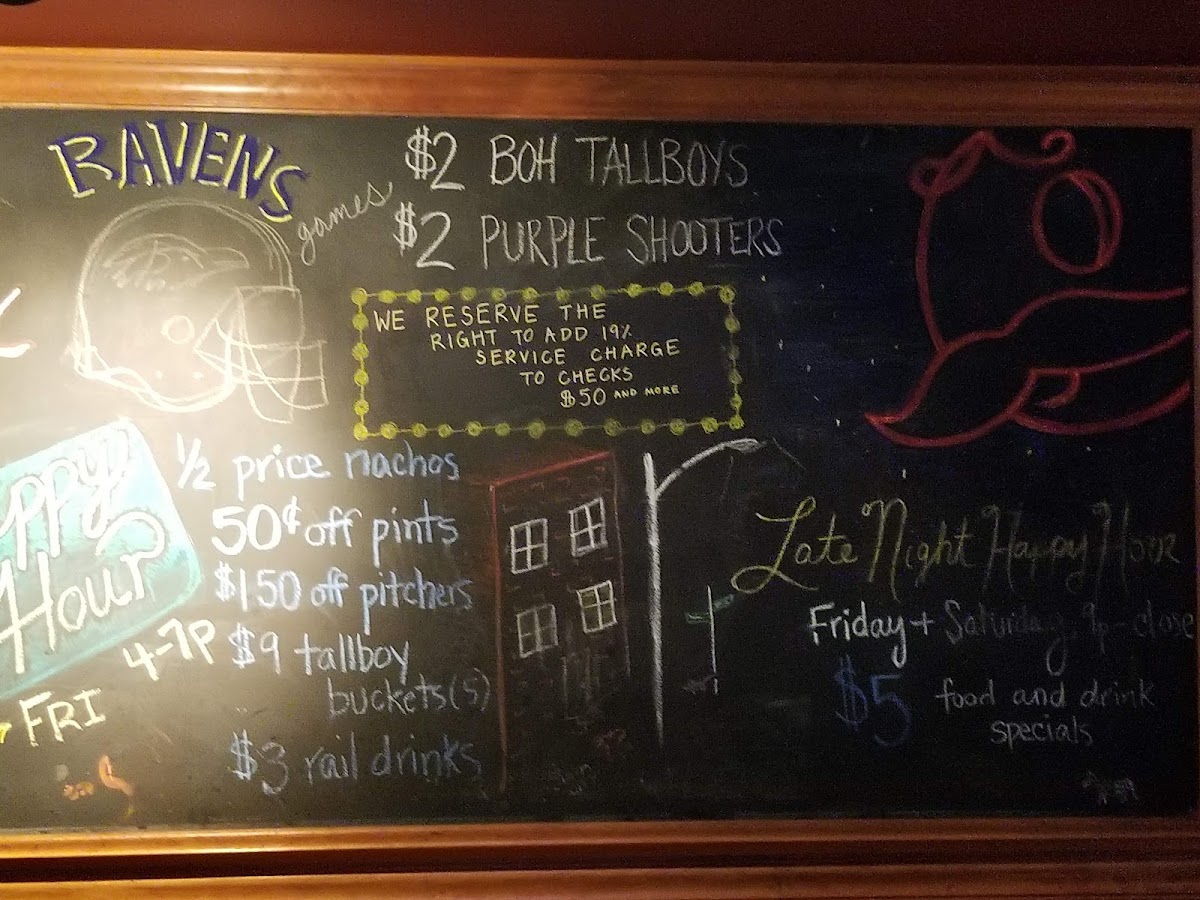 RAVENS
games
$2 BOH TALLBOYS
$2 PURPLE SHOOTERS
WE RESERVE THE
RIGHT TO ADD 19%
SERVICE CHARGE
TO CHECKS
$50 AND MORE
ppy
Hour
4-7P
FRI
1/2 price nachos
50¢ off pints
$1.50 off pitchers
$9 tallboy
buckets(5)
$3 rail drinks
Late Night Happy Hour
Friday + Saturday, 9p-close
$5 food and drink
specials